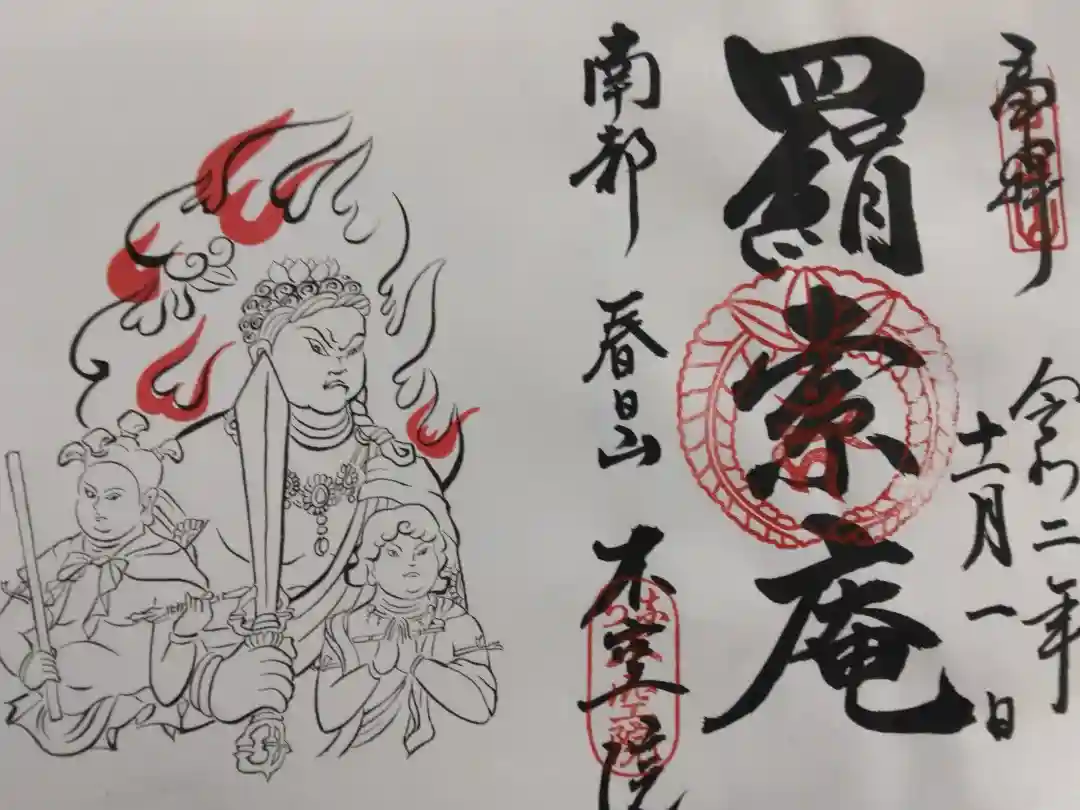 奉拝
令和二年
十二月一日
羂索庵
南都 春日山 不空院